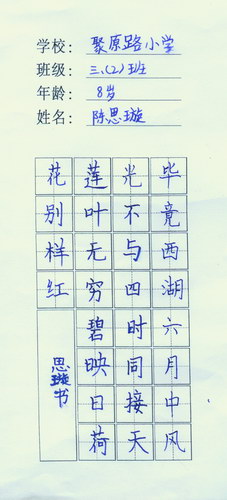 学校：聚原路小学
班级：三、(2)班
年龄：8岁
姓名：陈思璇
毕竟西湖六月中风
光不与四时同接天
莲叶无穷碧映日荷
花别样红
思璇书